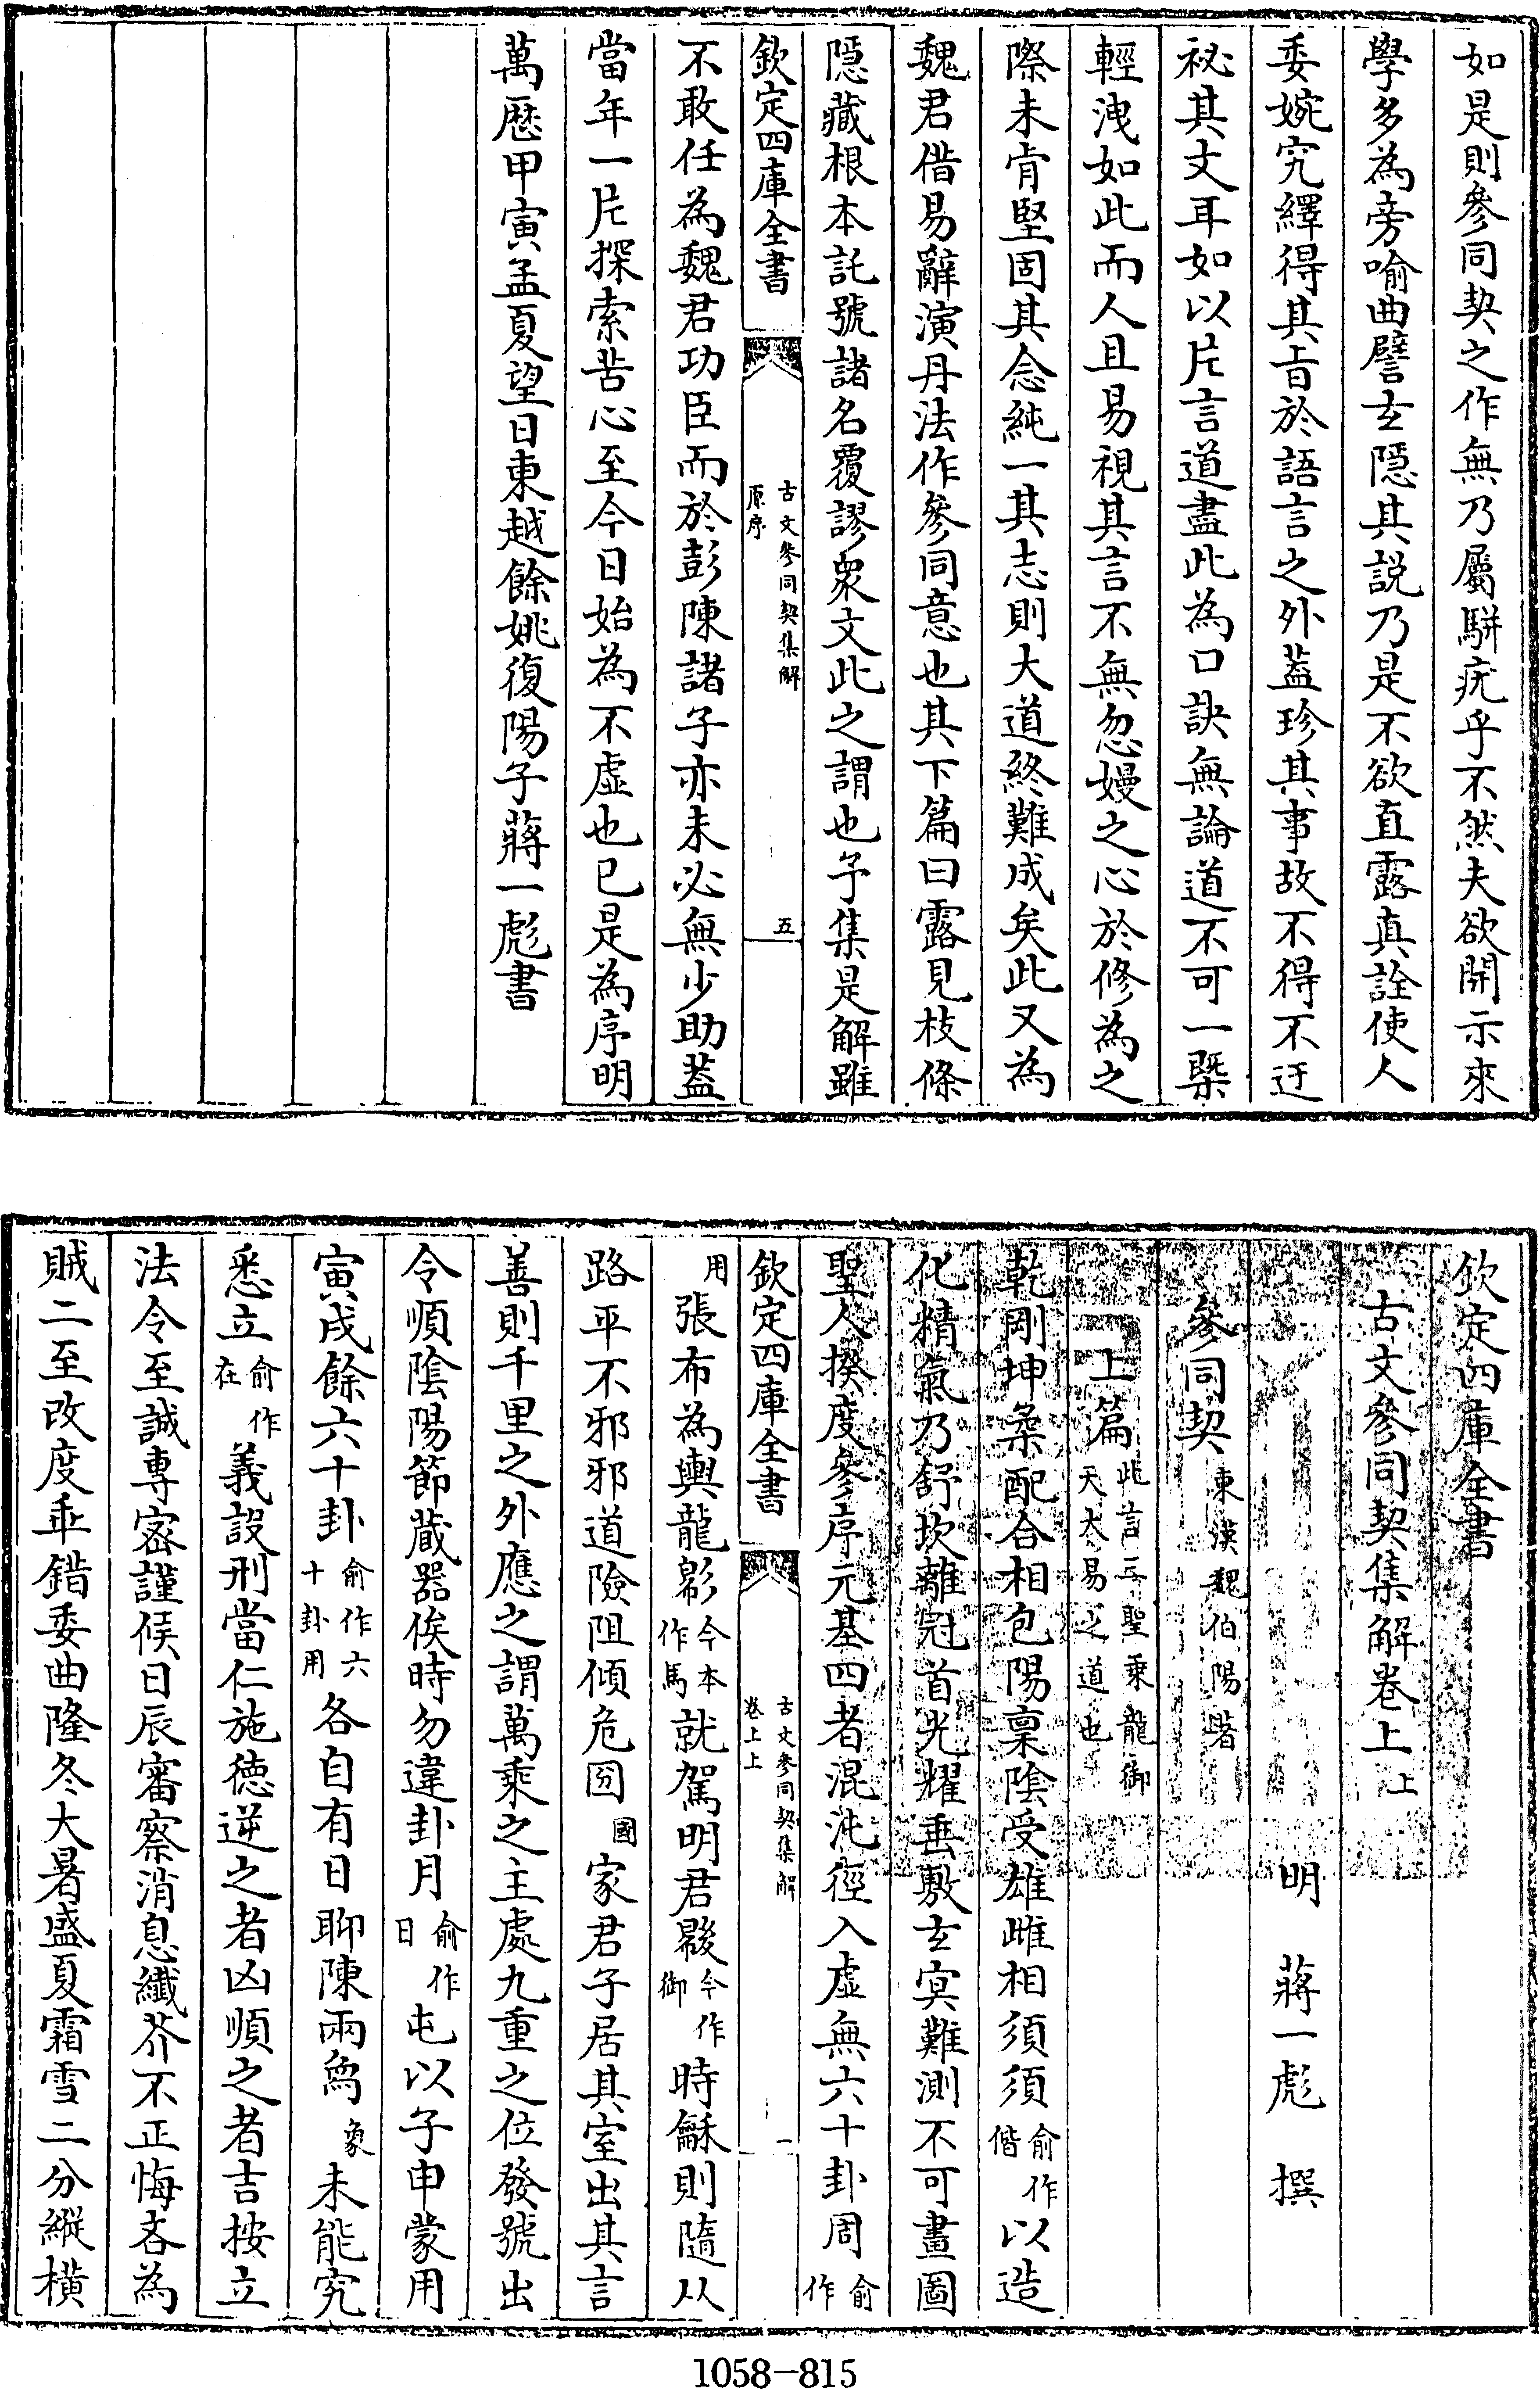 如是則參同契之作無乃屬駢疣乎不然夫欲開示來
學多為旁喻曲譬玄隱其説乃是不欲直露真詮使人
委婉究繹得其㫖於語言之外葢珍其事故不得不迂
祕其文耳如以片言道盡此為口訣無論道不可一槩
輕洩如此而人且易視其言不無忽嫚之心於修為之
際未肯堅固其念純一其志則大道終難成矣此又為
魏君借易辭演丹法作參同意也其下篇曰露見枝條
隱藏根本託號諸名覆謬衆文此之謂也予集是解雖
欽定四庫全書
古文參同契集解
原序
五
不敢任為魏君功臣而於彭陳諸子亦未必無少助葢
當年一片探索苦心至今日始為不虛也已是為序明
萬歷甲寅孟夏望日東越餘姚復陽子蔣一彪書
欽定四庫全書
古文參同契集解卷上上
明 蔣一彪 撰
參同契 東漢魏伯陽著
上篇 此言三聖乘龍御
天大易之道也
乾剛坤柔配合相包陽稟陰受雄雌相須須 俞作
偕 以造
化精氣乃舒坎離冠首光耀垂敷玄冥難測不可畫圖
聖人揆度參序元基四者混沌徑入虛無六十卦周 俞
作
欽定四庫全書
古文參同契集解
卷上上
一
用 張布為輿龍㣎 今本
作馬 就駕明君㲅 今作
御 時龢則隨从
路平不邪邪道險阻傾危囶 國 家君子居其室出其言
善則千里之外應之謂萬乘之主處九重之位發號出
令順陰陽節藏器俟時勿違卦月 俞作
日 屯以子申蒙用
寅戌餘六十卦 俞作六
十卦用 各自有日聊陳兩𧰼 象 未能究
悉立 俞作
在 義設刑當仁施德逆之者凶順之者吉按立
法令至誠專密謹候日辰審察消息纖芥不正悔吝為
賊二至改度乖錯委曲隆冬大暑盛夏霜雪二分縱橫
1058-815